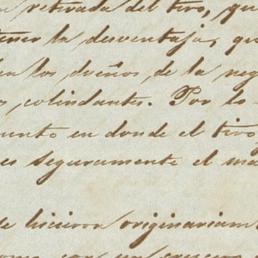 retirada del tiro, que
tener la desventaja, qu
en los dueños de la neg
colindantes. Por lo
punto en donde el tiro
es seguramente el ma
de hicieron originariam
con un crucero